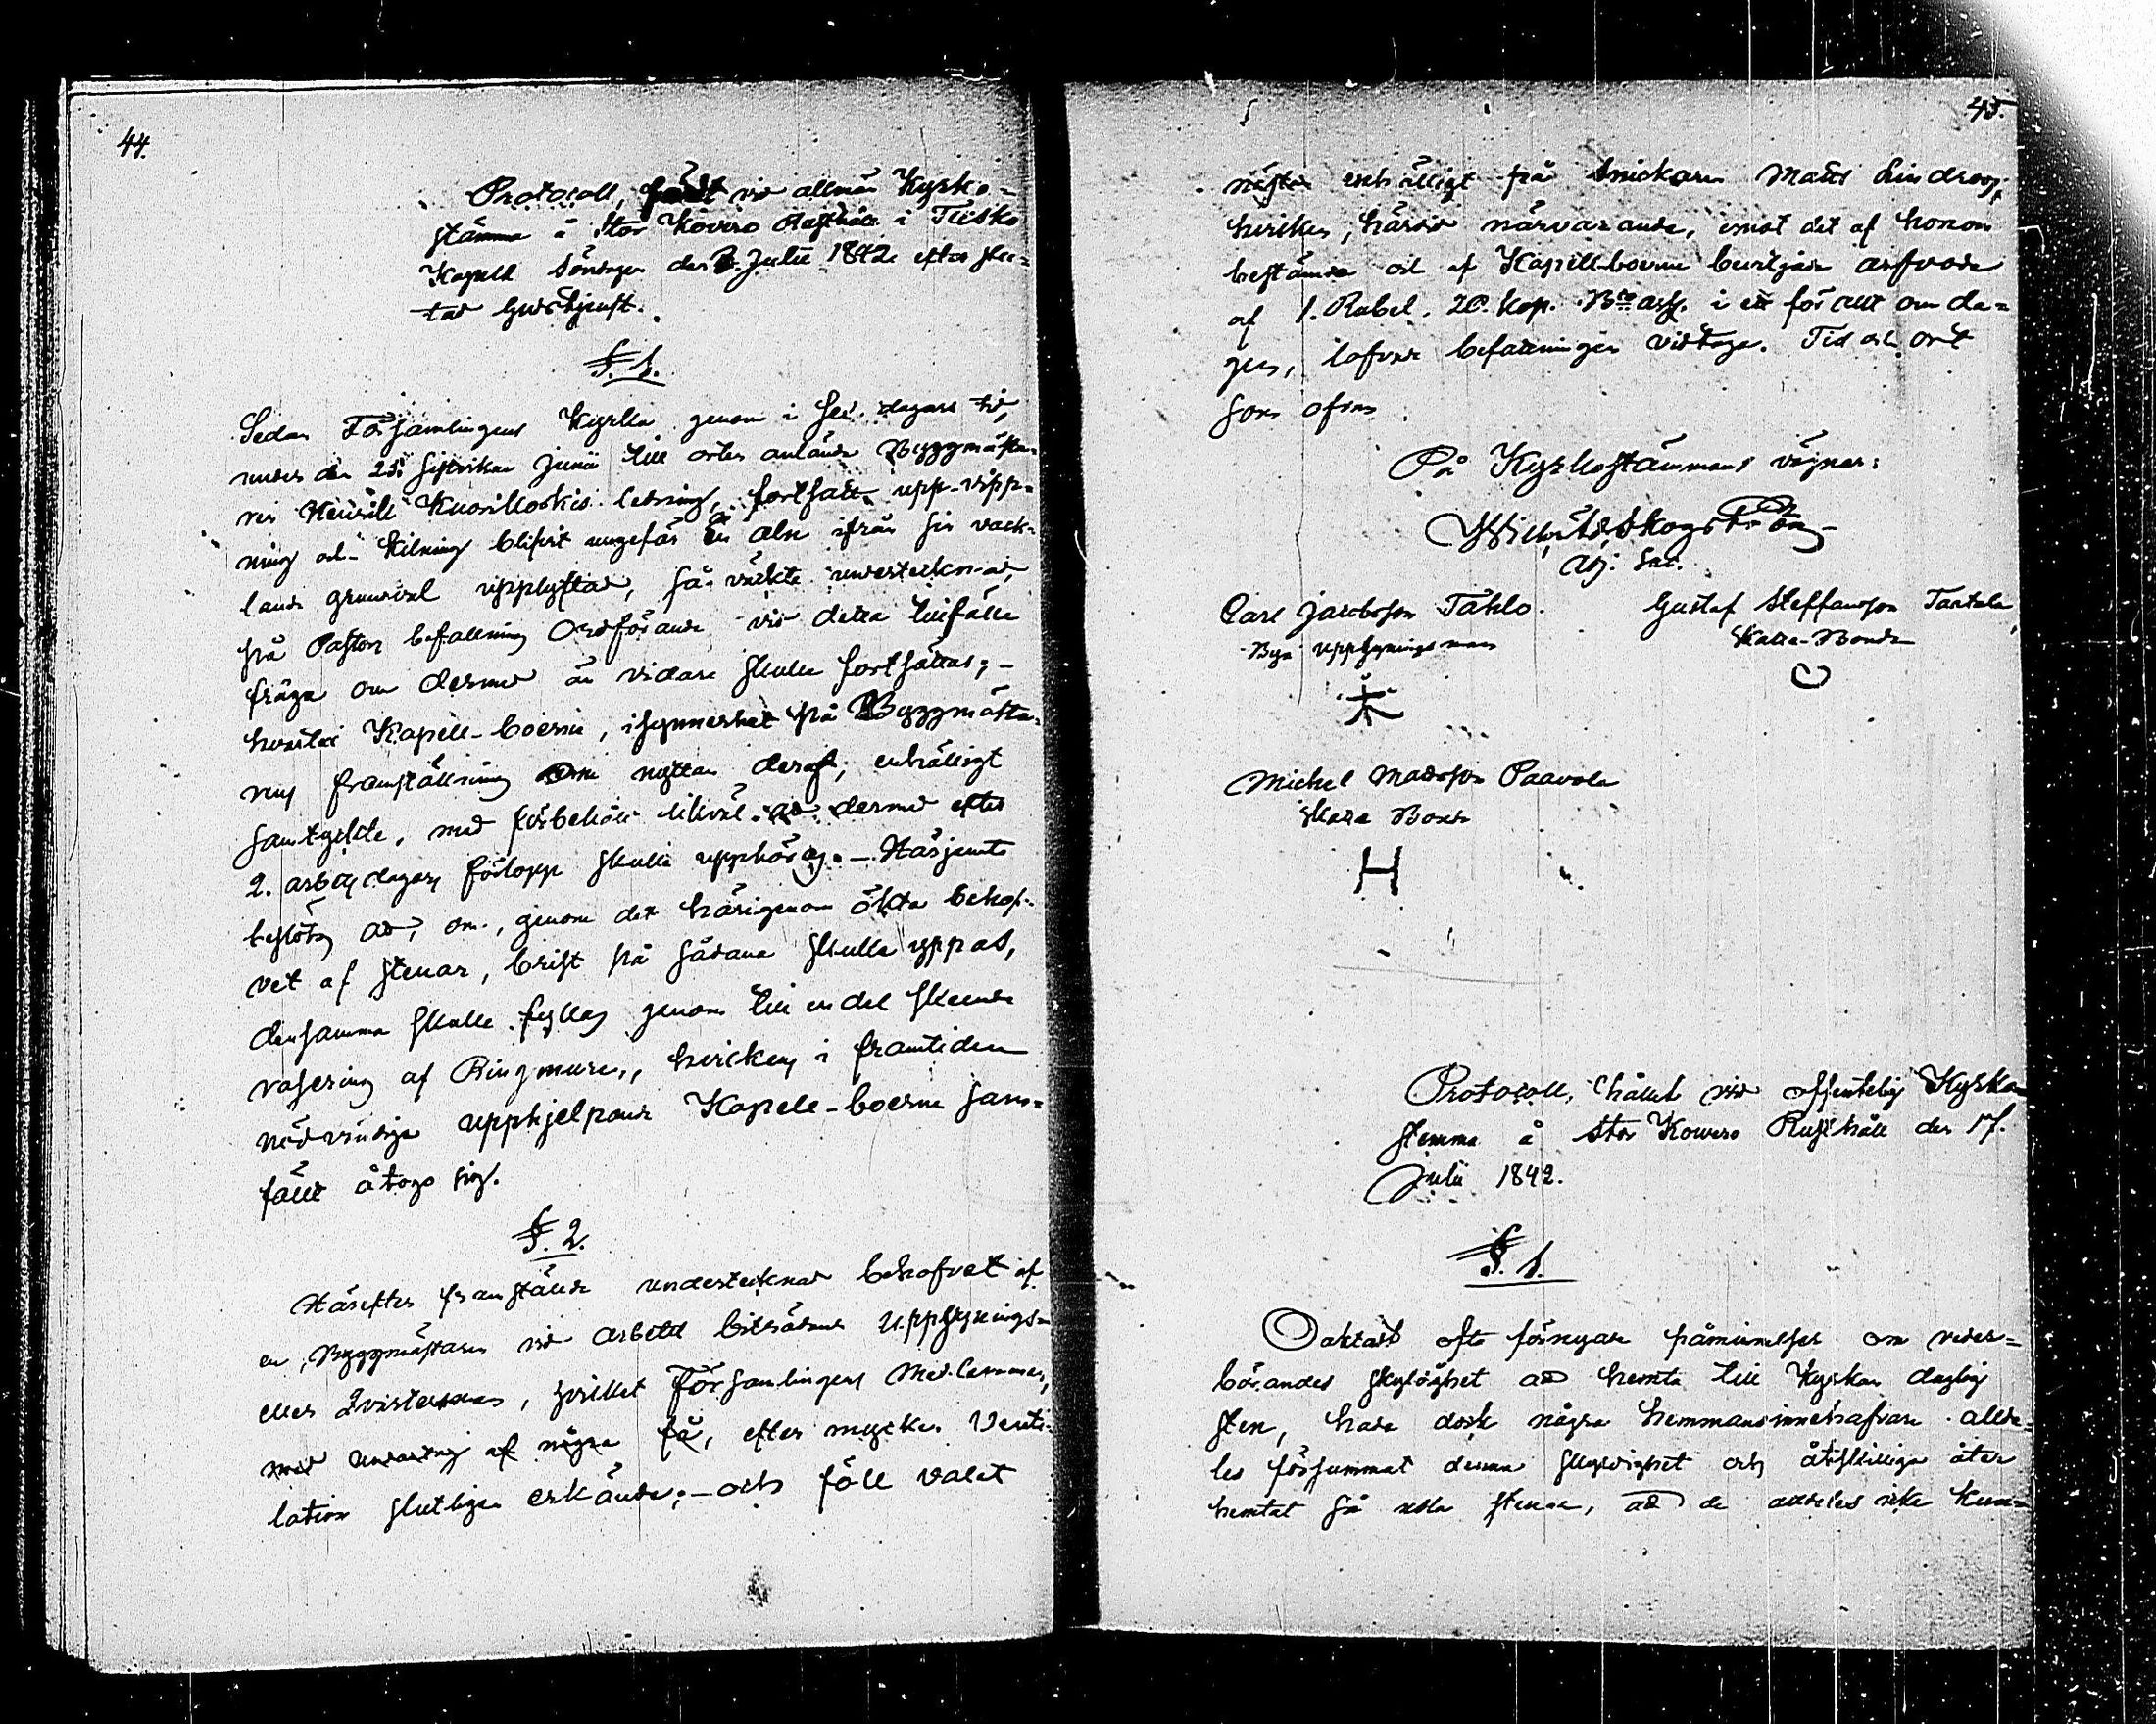 44.
Protocoll, fördt vid allmän Kyrko-
stämma å Stor Kovero Rusthåll i Teisko
Kapell Söndagen den 3. Julii 1842 efter slu-
tad Gudstjenst.
§. 1.
Sedan Församlingens Kyrka genom i sex dagars tid,
under den 25. sistvikne Junii till orten anlände Byggmästa-
ren Heikill Kuorilloskis ledning, fortsatt upp-vipp-
ning och kilning blifvit ungefär en aln ifrån sin vack-
lande grundval upplyftad, så väckte undertecknad,
på Pastors befallning Ordförande vid detta tillfälle
fråga om dermed än vidare skulle fortsättas; -
hvartill Kapell-boerne, isynnerhet på Byggmästa-
rens framställning om nyttan deraf, enhälligt
samtyckte, med förbehåll likväl att dermed efter
2. arbetsdagars förlopp skulle upphöras. - Härjemte
beslöts att, om, genom det härigenom ökta behof-
vet af stenar, brist på sådana skulle uppstå,
densamma skulle fyllas genom till en del skeende
rasering af Ringmuren, hvickens i framtiden
nödvändiga upphjelpande Kapell-boerne sam-
fällt åtogo sig.
§. 2.
Härefter framstälde undertecknad behofvet af
en, Byggmästaren vid arbetet biträdande Uppsynings-
eller, hvilket Församlingens Med-lemmar,
med undantag af några få, efter mycken Venti-
lation slutligen erkände; - och föll valet
45.
nästan enhälligt på Snickaren Matts Lindroos,
hvilken, härvid närvarande, emot det af honom
bestämda och af Kapell-boerne beviljade arfvode
af 1. Rubel. 20. Kop. B:co ass. i ett för allt om da-
gen, lofvade befattningen vidtaga. Tid och ort
som ofvan
På Kyrkostämmans vägnar:
Wilh. Skogström
Adj: Sac.
Carl Jacobsson Tählo. Gustaf Steffansson Tantala
Bys Uppsyningsman Skatte-Bonde
Michel Madsson Paavola
Skatte Bonde
H
Protocoll, hållet vid offentelig Kyrko-
stemma å Stor Kovero Rusthåll den 17.
Julii 1842.
§. 1.
Oaktadt ofta förnyade påminnelser om veder-
börandes skyldighet att hemta till Kyrkan duglig
sten, hade dock några hemmansinnehafvare allde-
les försummat denna skyldighet och åtskilliga åter
hemtat så usla stenar, att de alldeles icke kun-